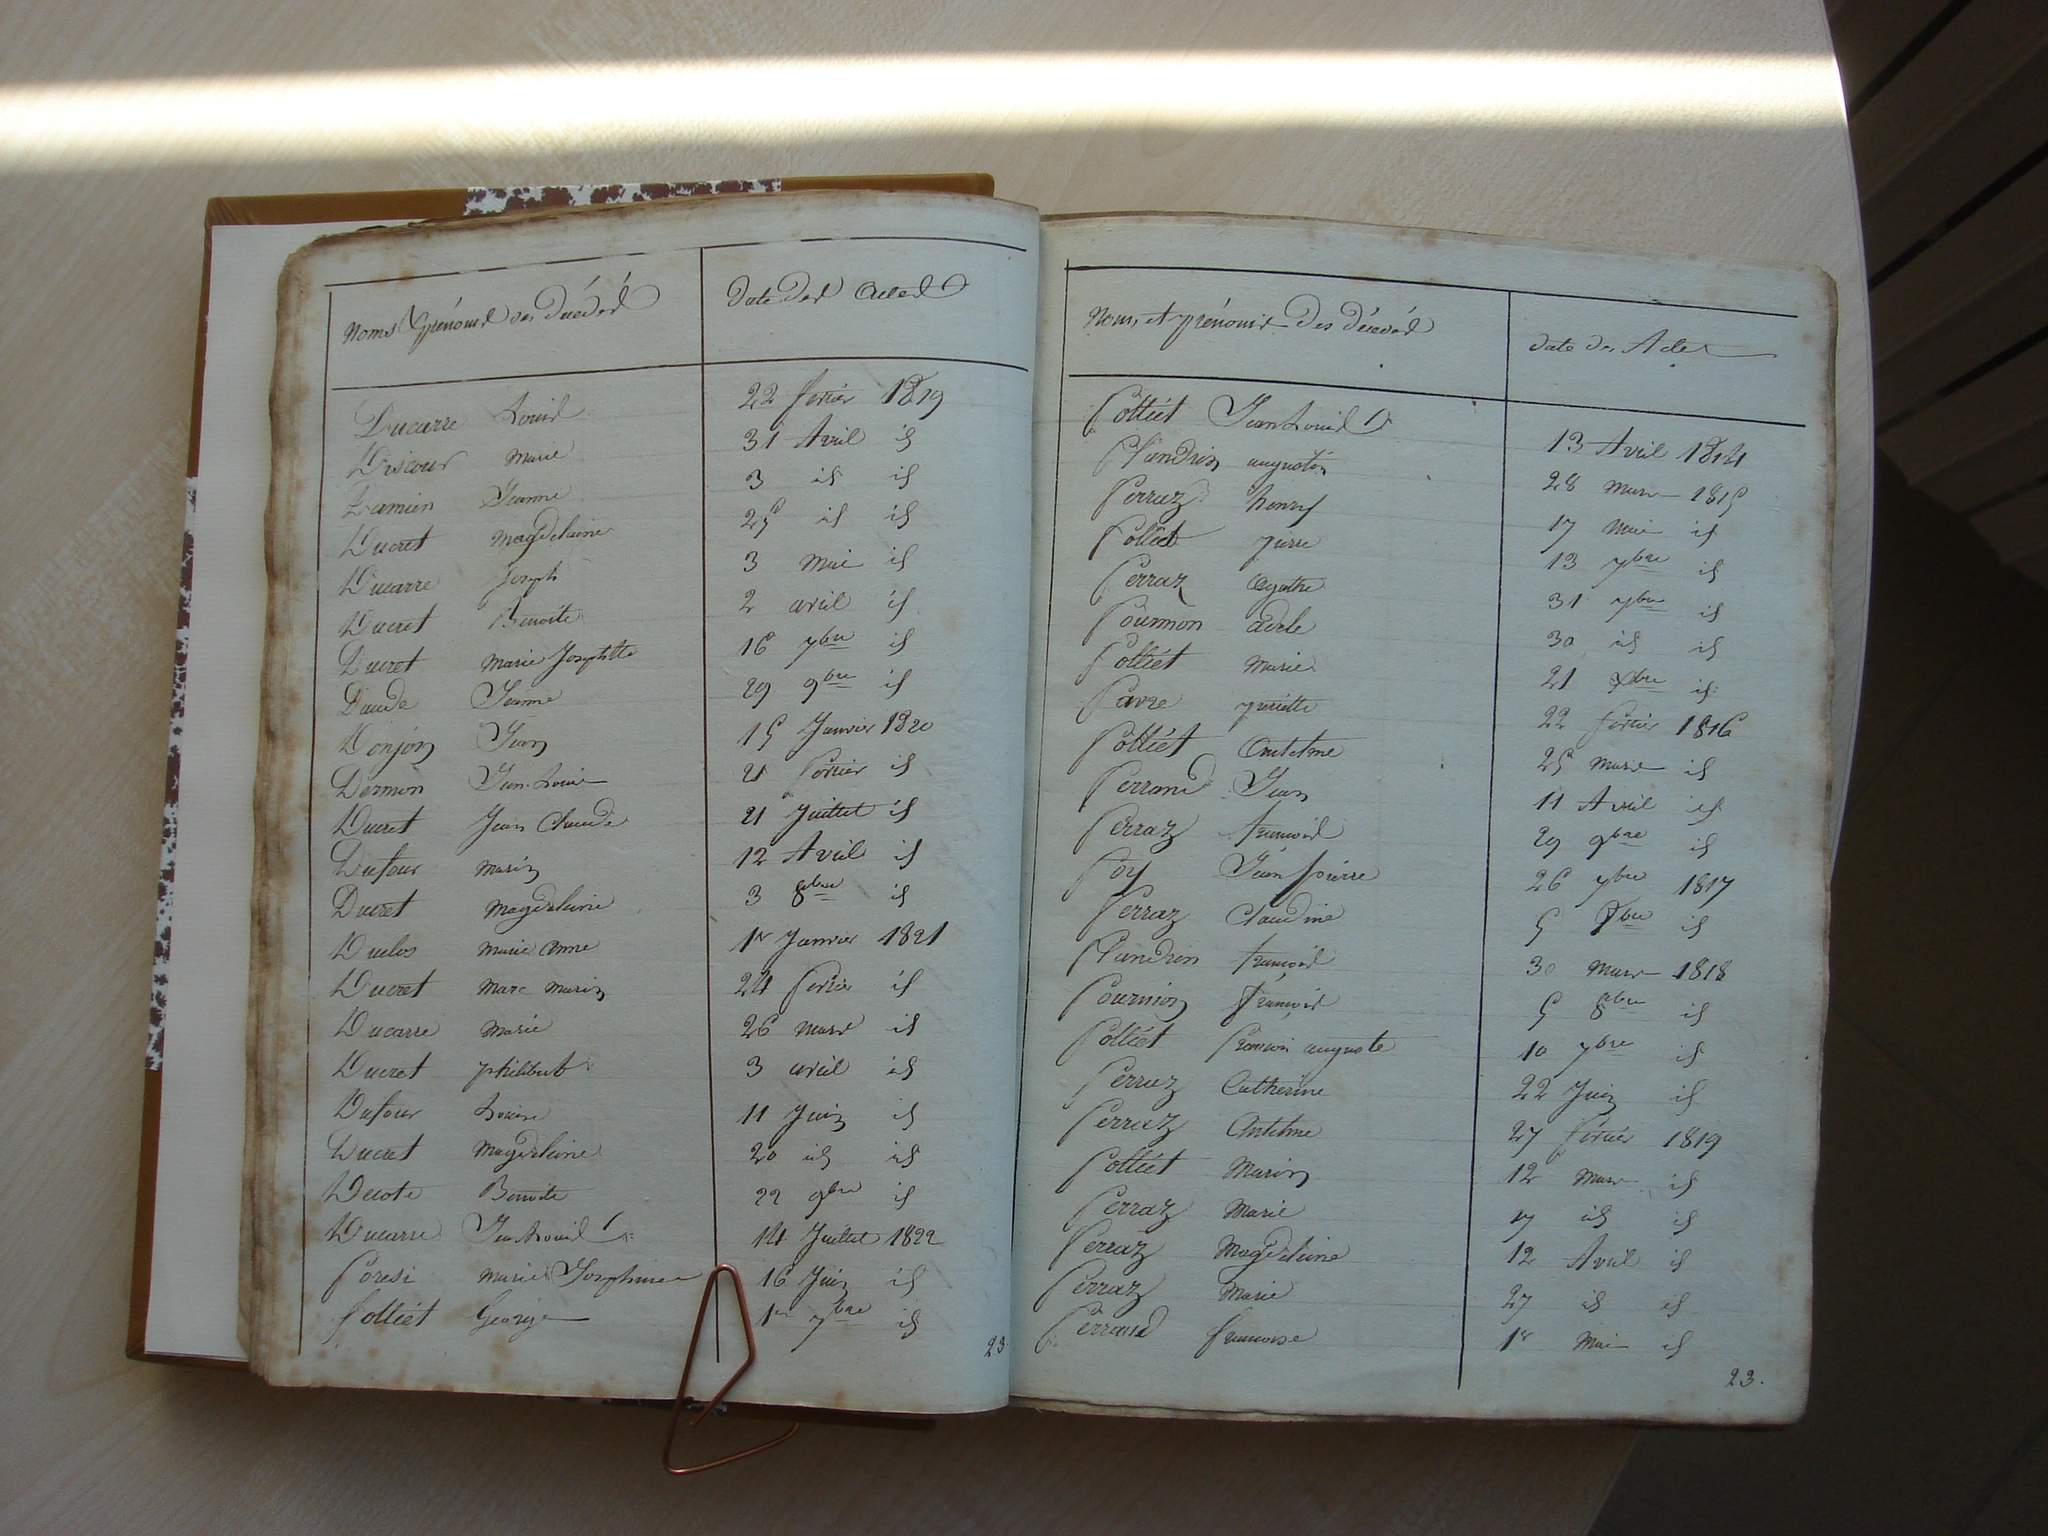 Noms & prénoms des décédés
Date des Actes
Ducarre Louis 22 février 1819
Discour Marie 31 Avril id
Damien Jeanne 3 id id
Ducret Magdelaine 25 id id
Ducarre Joseph 3 Mai id
Ducret Benoite 2 avril id
Ducret Marie Josephtte 16 7bre id
Daude Jeanne 29 9bre id
Donjon Jean 15 Janvier 1820
Dormon Jean-Louis 21 février id
Ducret Jean Claude 21 Juillet id
Dufour Marin 12 Avril id
Ducret Magdelaine 3 8bre id
Duclos Marie Anne 1er Janvier 1821
Ducret Marc Marin 24 février id
Ducarre Marie 26 Mars id
Ducret philibert 3 avril id
Dufour Louise 11 Juin id
Ducret Magdelaine 20 id id
Decote Benoite 22 9bre id
Ducarre Jean Louis 14 Juillet 1822
Marie Josephine 16 Juin id
folliet George 1er 7bre id
23
Noms et prénoms des décédés
Date des Actes
folliet Jean Louis 13 Avril 1814
flandrin augustin 28 Mars 1815
ferraz henry 17 Mai id
folliet pierre 13 7bre id
ferraz agathe 31 7bre id
fournion adele 30 id id
folliet Marie 21 Xbre id
favre 22 février 1816
folliet Antelme 25 Mars id
ferrand Jean 11 Avril id
ferraz francois 29 9bre id
foy Jean pierre 26 7bre 1817
ferraz Claudine 5 id
flandrin francois 30 Mars 1818
fournion françois 5 8bre id
folliet francois auguste 10 7bre id
ferraz Catherine 22 Juin id
ferraz Antelme 27 février 1819
folliet Marin 12 Mars id
ferraz Marie 17 id id
ferraz Magdelaine 12 Avril id
ferraz Marie 27 id id
ferrand francoise 1er Mai id
23.